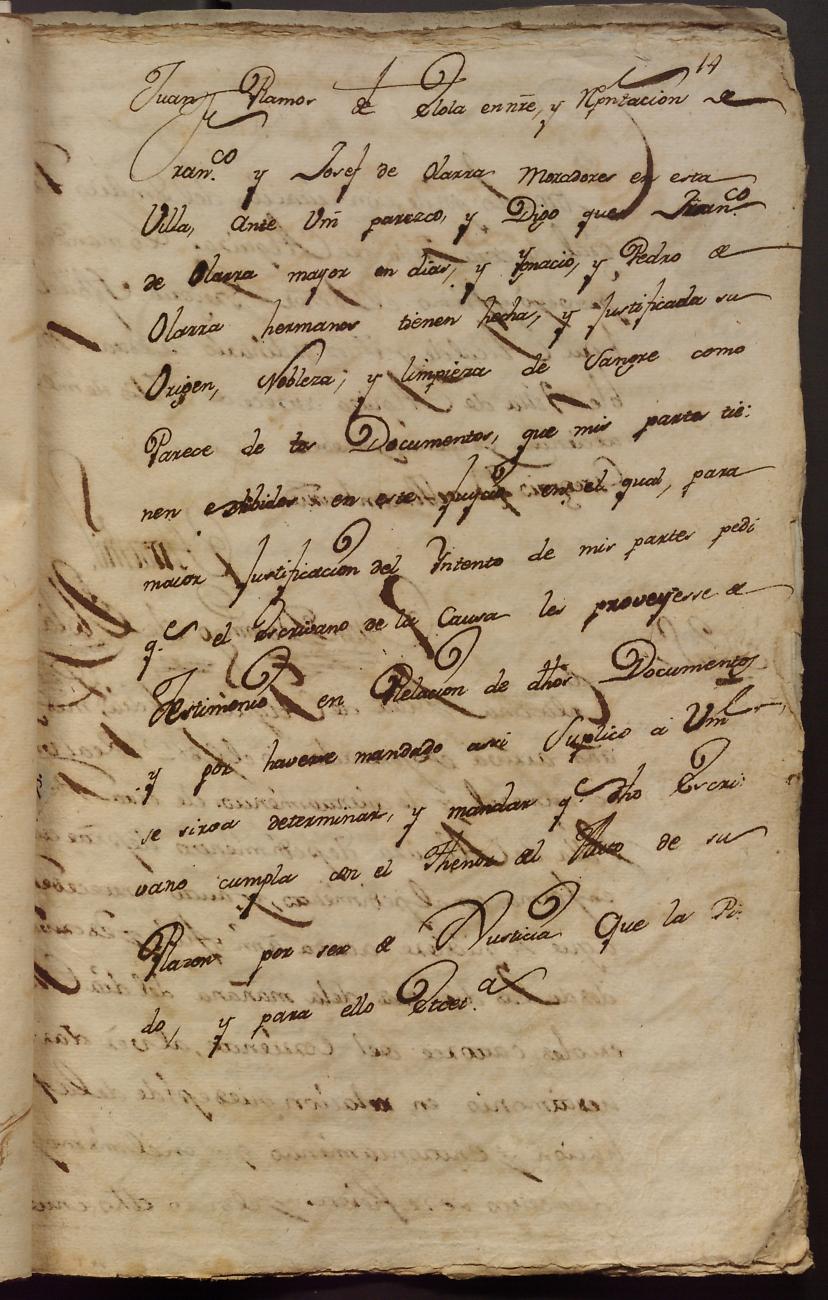 14
Juan Ramos de Elola en nre, y Rpntacion de
Fran.co y Josef de Olarra Moradores en esta
Villa, Ante Vm parezco, y Digo que Fran.co
de Olarra mayor en dias, y Ygnacio, y Pedro de
Olarra hermanos tienen hecha, y justificada su
Origen, Nobleza; y limpieza de Sangre como
Parece de los Documentos, que mis partes tie:
nen exibidos en este Juycio en el qual, para
maior Justificacion del Yntento de mis partes pedi
q.e el Escrivano de la Causa les proveyesse de
Testimonio en Relacion de dhos Documentos
y por haverse mandado assi Suplico a Vm
se sirva determinar, y mandar q.e dho Escri:
vano cumpla con el Thenor del Auto de su
Razon por ser de Justicia Que la Pi:
do, y para ello Etcet.a